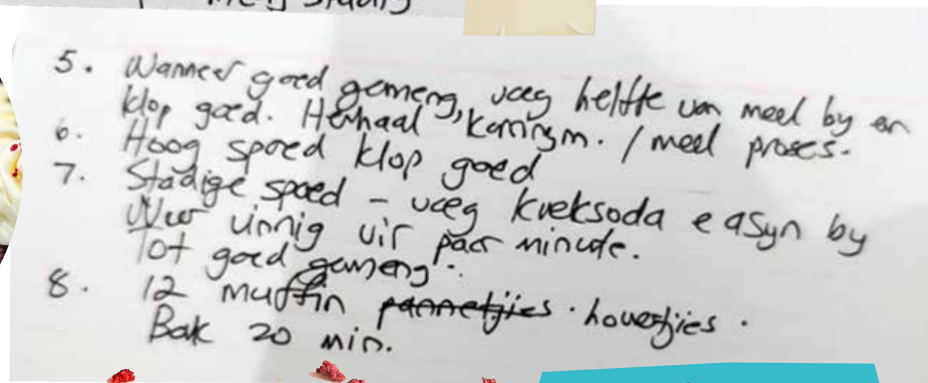 5. Wanneer goed gemeng, voeg helfte van meel by en
klop goed. Herhaal, karringm. / meel proses.
6. Hoog spoed klop goed
7. Stadige spoed - voeg koeksoda e asyn by
Weer vinnig vir paar minute.
Tot goed gemeng.
8. 12 muffin pannetjies . houertjies .
Bak 20 min.